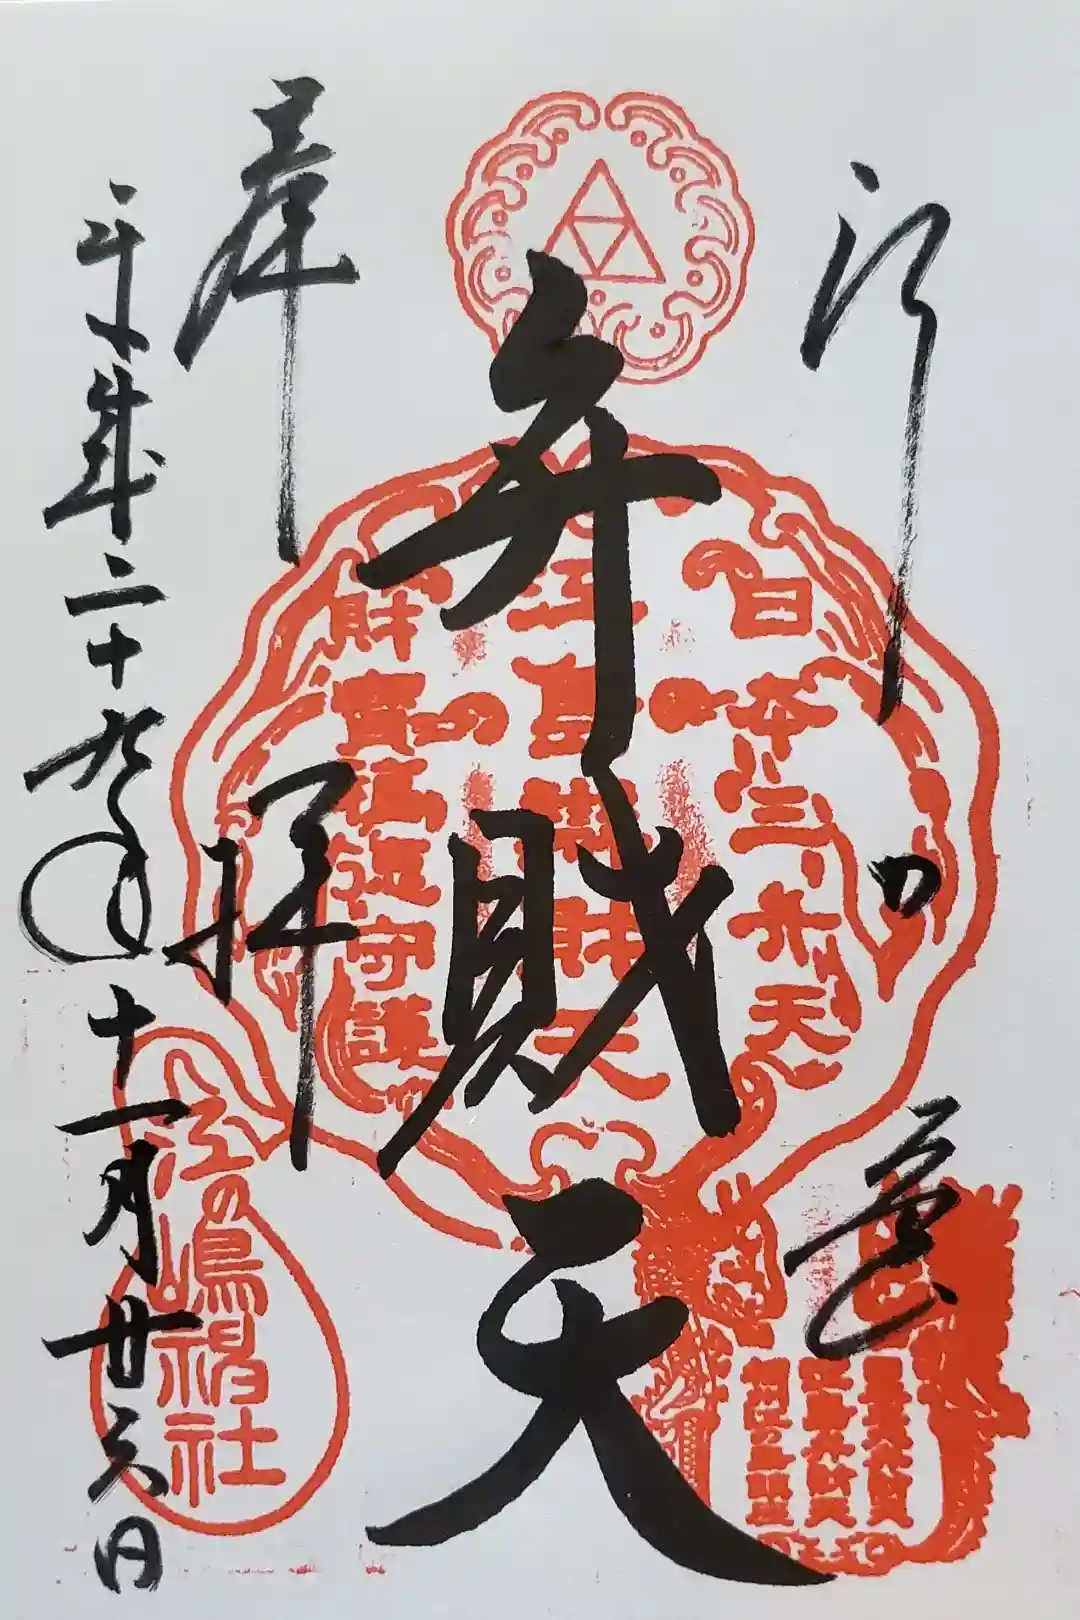 江の島
日本三弁天
江島辨財天
財寶福徳守護
弁財天
奉拝
江の嶋神社
平成二十九年十一月廿六日